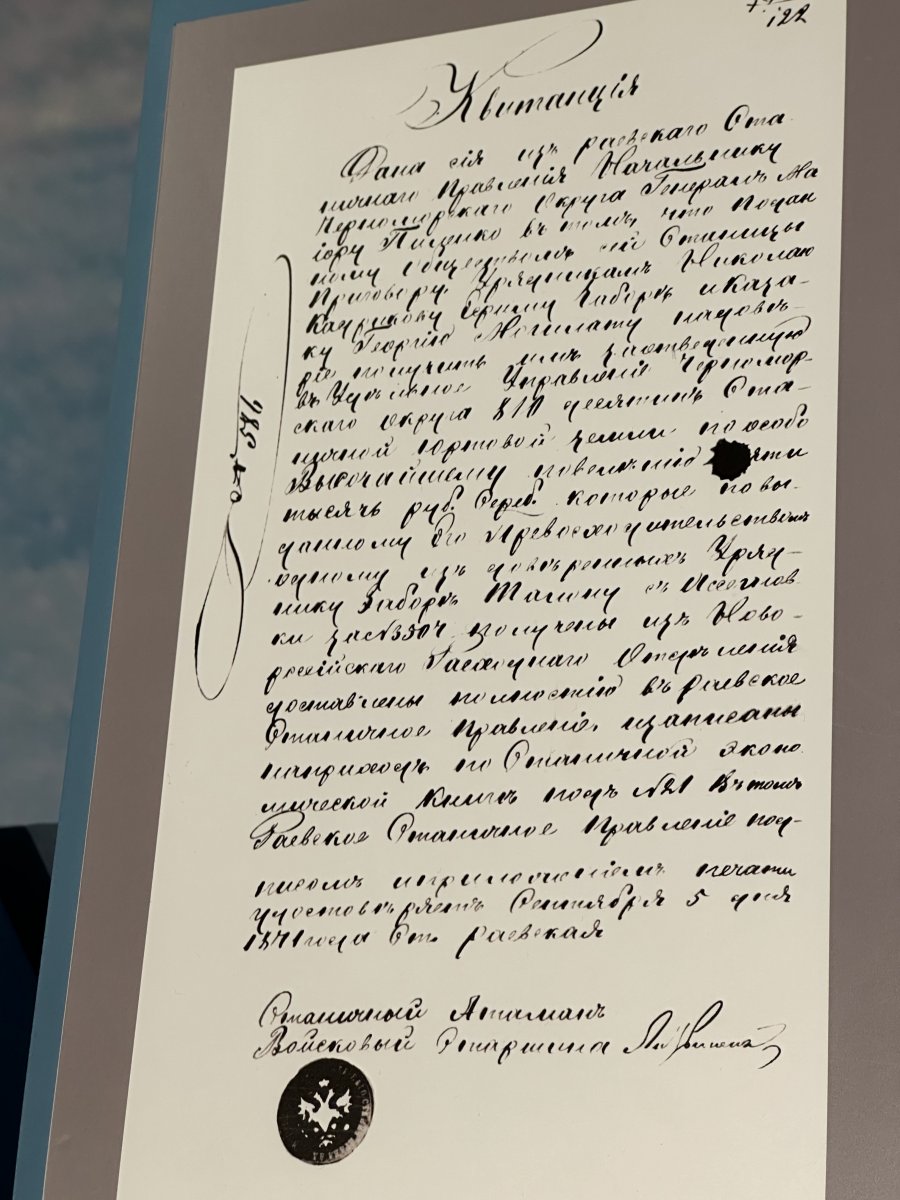 122
Квитанція
Дана сія изъ раевскаго Ста
ничнаго Правленія Начальнику
Черноморскаго Округа Генералъ Ма
іору Пиленко въ томъ, что Подан
ному Обществомъ сей Станицы
Приговору, Урядникамъ Николаю
Сергѣю Заборѣ и Каза-
ку Георгію Могилату
получить
въ Управленіе Черномор-
скаго округа 810 десятинъ Ста-
ничной юртовой земли по особо
Высочайшему повелѣнію яти
тысячъ руб. Сереб. которые по вы-
данному Его Превосходительствомъ
одному изъ довѣренныхъ Уряд-
нику Заборѣ Талону съ Ассигнов-
ки за № 3304 получены изъ Ново-
россійскаго Расходнаго Отдѣленія
доставлены полностію въ раевское
Станичное Правленіе, изаписаны
наприходъ по Станичной эконо
мической книгѣ подъ №21 Вътомъ
Раевское Станичное Правленіе под-
писомъ иприложеніемъ печати
удостовѣряетъ Сентября 5 дня
1871 года Ст. раевская
Станичный Атаманъ
Войсковый Старшина